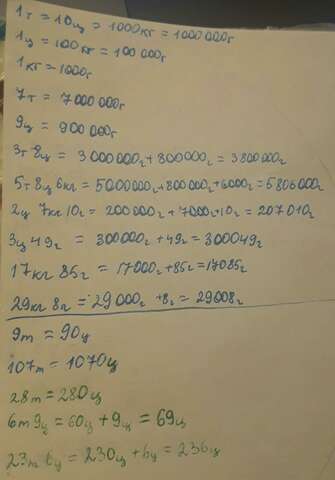 1т = 10ц = 1000кг = 1000000г
1ц = 100кг = 100 000г
1кг = 1000г
7т = 7000000г
9ц = 900 000г
3т 8ц = 3000000г + 800000г = 3800000г
5т 8ц 6кг = 5000000г + 800000г + 6000г = 5806000г
2ц 7кг 10г = 200000г + 7000г + 10г = 207010г
3ц 49г = 300000г + 49г = 300049г
17кг 85г = 17000г + 85г = 17085г
29кг 8г = 29000г + 8г = 29008г
9т = 90ц
107т = 1070ц
28т = 280ц
6т 9ц = 60ц + 9ц = 69ц
23т 6ц = 230ц + 6ц = 236ц